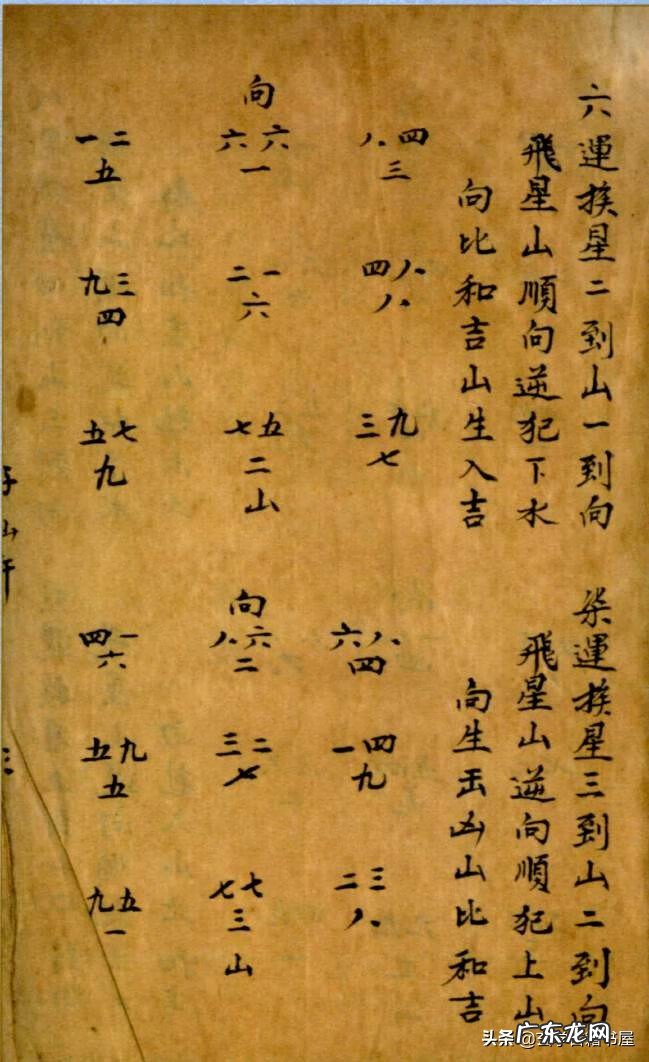 六運挨星二到山一到向
飛星山順向逆犯下水
向比和吉山生入吉
向
一二 六六 八四
五 一 三
九三 二一 四八
四 六 八
五七 七五 三九
九 二山 七
柒運挨星三到山二到向
飛星山逆向順犯上山
向生出凶山比和吉
向
四一 八六 六八
六 二 四
五九 三二 一四
五 七 九
九五 七七 二三
一 三山 八
子山午
三
广东龙网
头条 @ 书屋